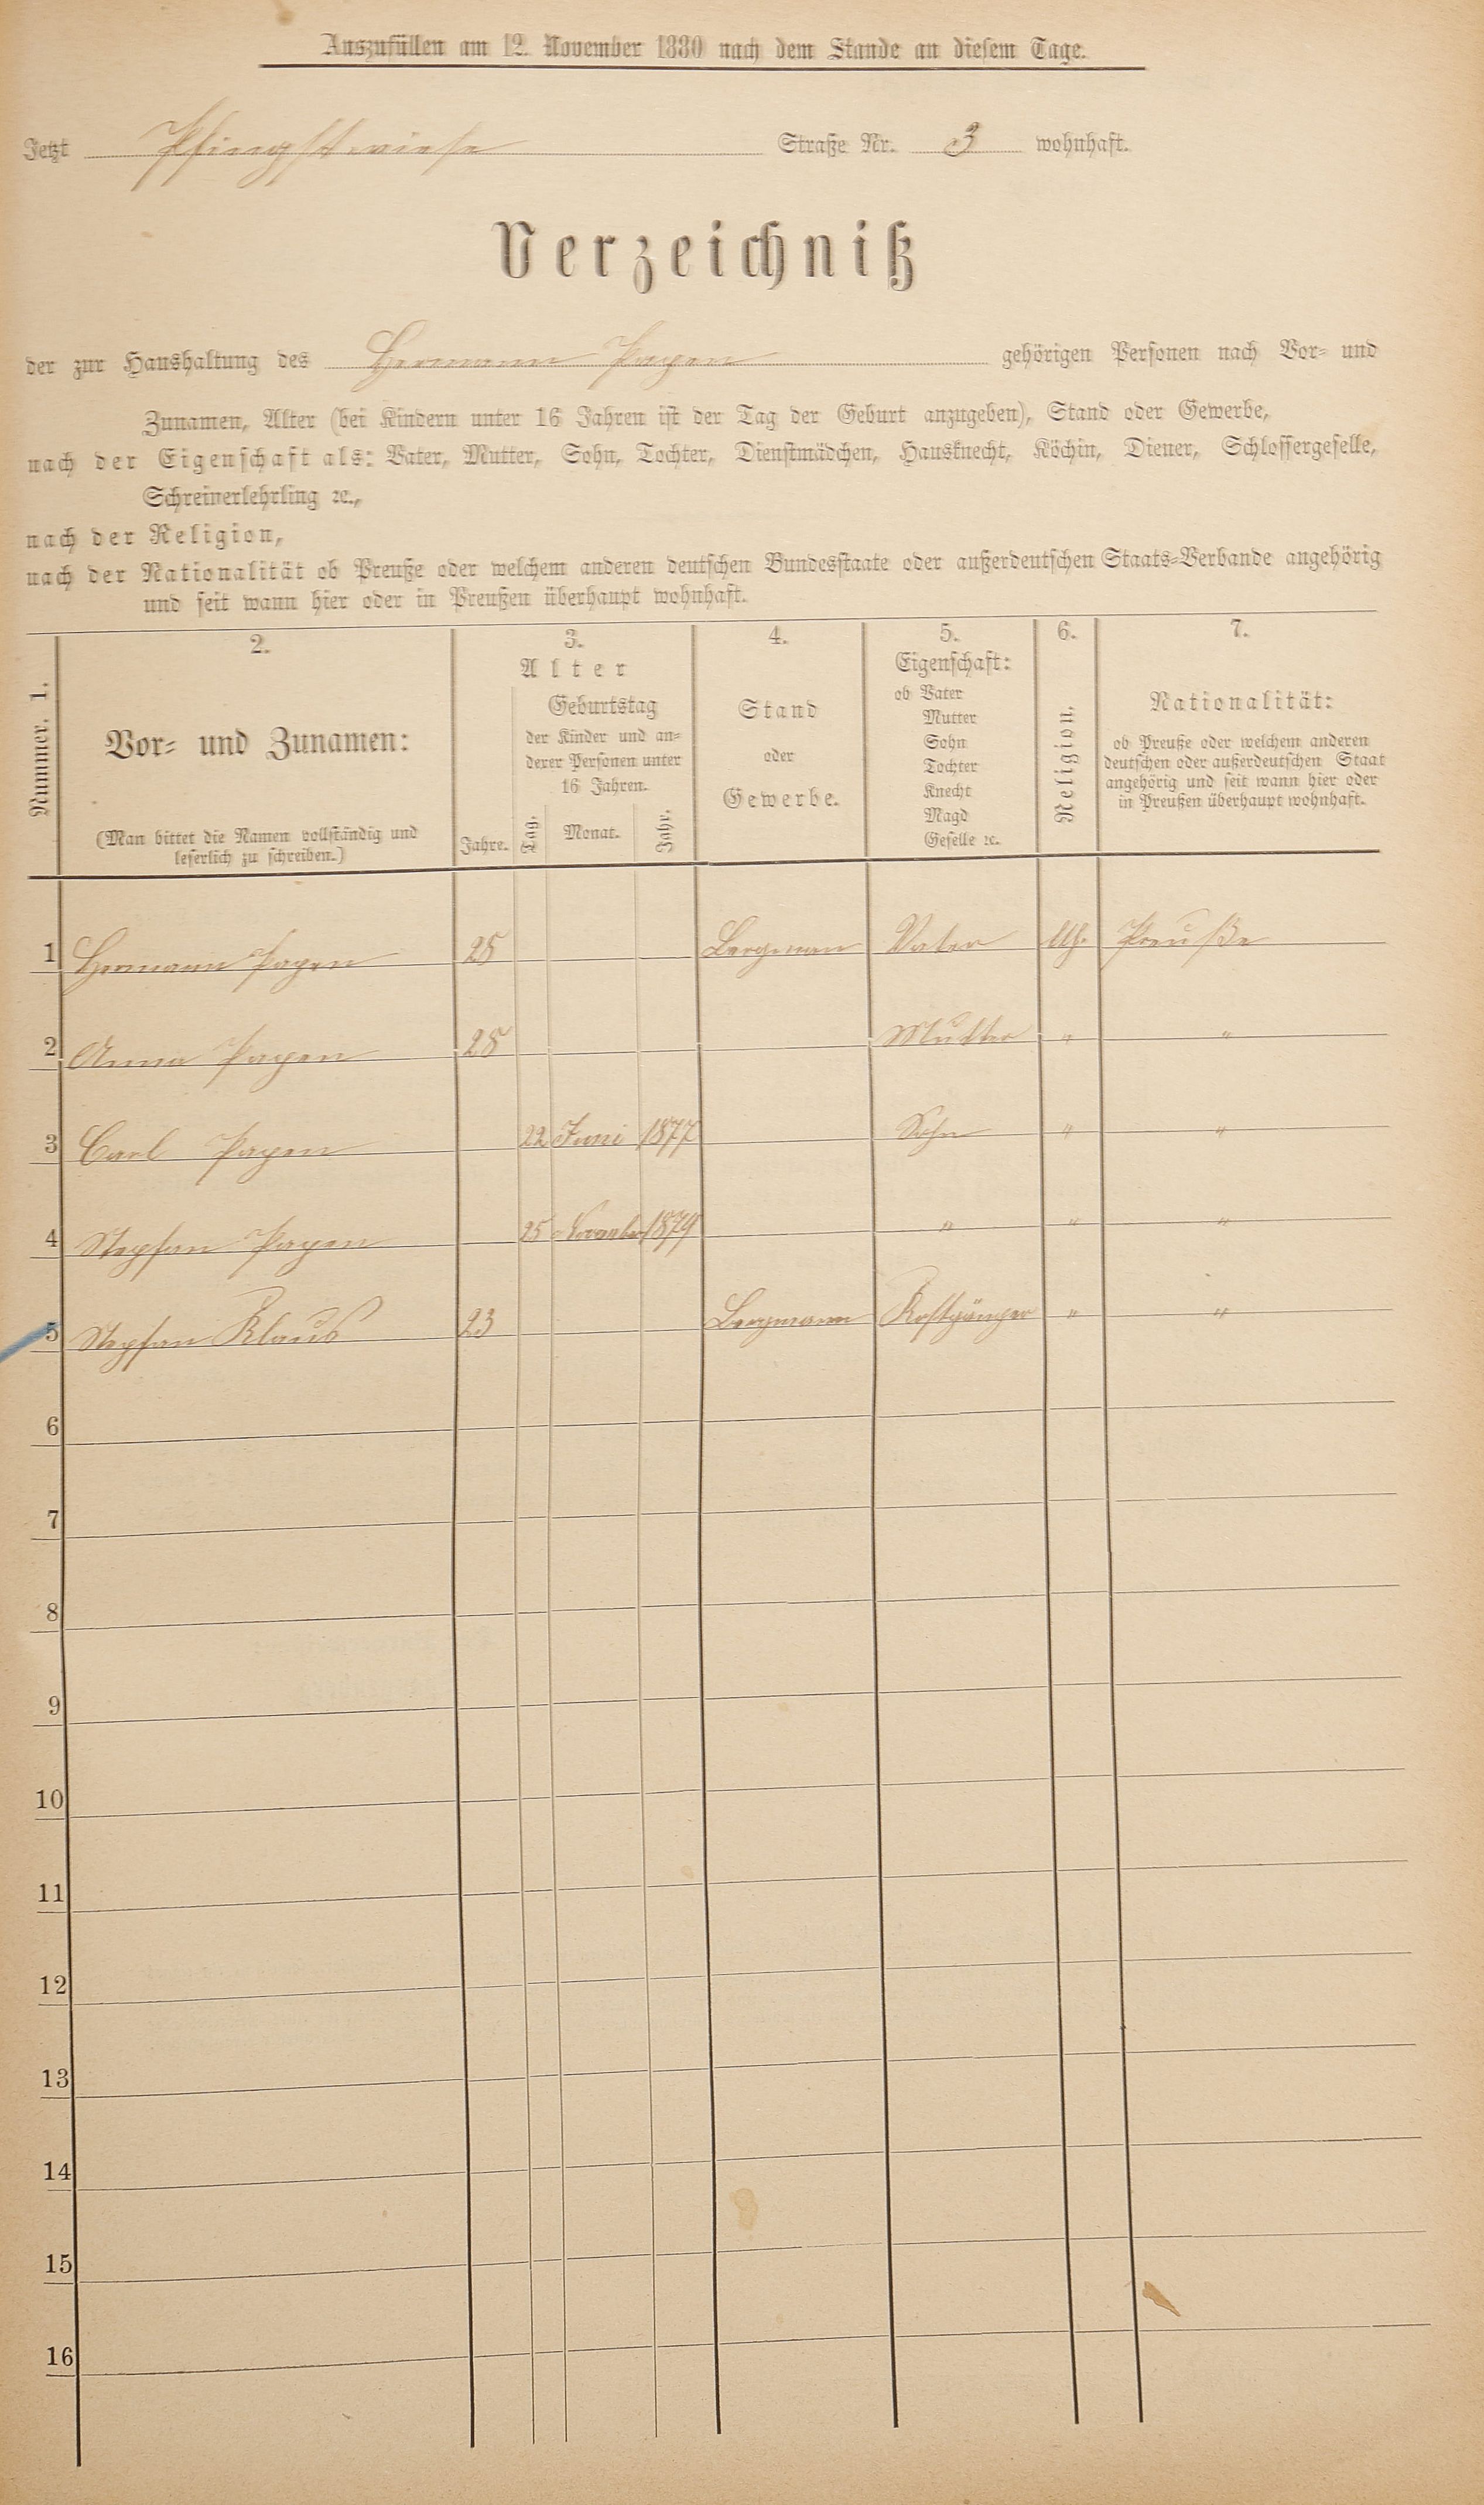 Auszufüllen am 12. November 1880 nach dem Stande an diesem Tage.
Jetzt Pfingstwiese Straße Nr. 3 wohnhaft.
Verzeichniß
der zur Haushaltung des Hermann Papen gehörigen Personen nach Vor- und
Zunamen, Alter (bei Kindern unter 16 Jahren ist der Tag der Geburt anzugeben), Stand oder Gewerbe,
nach der Eigenschaft als: Vater, Mutter, Sohn, Tochter, Dienstmädchen, Hausknecht, Köchin, Diener, Schlossergeselle,
Schreinerlehrling ꝛc.,
nach der Religion,
nach der Nationalität ob Preuße oder welchem anderen deutschen Bundesstaate oder außerdeutschen Staats-Verbande angehörig
und seit wann hier oder in Preußen überhaupt wohnhaft.
Nummer. 1.
2.
Vor- und Zunamen:
(Man bittet die Namen vollständig und
leserlich zu schreiben.)
3.
Alter
Jahre.
Geburtstag
der Kinder und an-
derer Personen unter
16 Jahren.
Tag. Monat. Jahr.
4.
Stand
oder
Gewerbe.
5.
Eigenschaft:
ob Vater
Mutter
Sohn
Tochter
Knecht
Magd
Geselle ꝛc.
6.
Religion.
7.
Nationalität:
ob Preuße oder welchem anderen
deutschen oder außerdeutschen Staat
angehörig und seit wann hier oder
in Preußen überhaupt wohnhaft.
1 Hermann Papen 25 Bergman Vater Preuße
2 Anna Papen 25 Mutter " "
3 Carl Papen 22 Juni 1877 Sohn " "
4 Stephan Papen 25 November 1879 " " "
5 Stephan Klaus 23 Bergmann Kostgänger " "
6
7
8
9
10
11
12
13
14
15
16